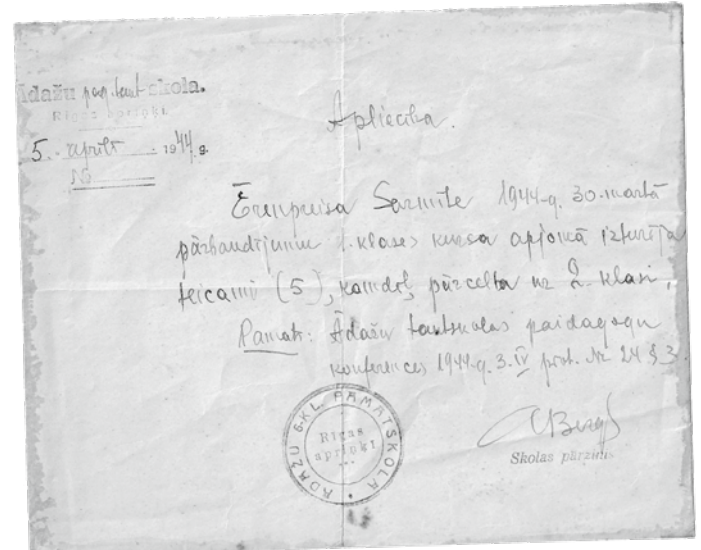 Ādažu pag. taut-skola.
Rīgas apriņķī.
5. aprīlī 1944. g.
№
Apliecība.
Ērmpreisa Sarmīte 1944.g. 30.martā
pārbaudījumu 1.klases kursa apjomā izturēja
teicami (5), kamdēļ pārcelta uz 2. klasi.
Pamats: Ādažu tautskolas paidagogu
konferences 1944.g. 3.IV prot. Nr 24 § 3.
ĀDAŽU 6-KL. PAMATSKOLA
Rīgas
apriņķī
Skolas pārzinis